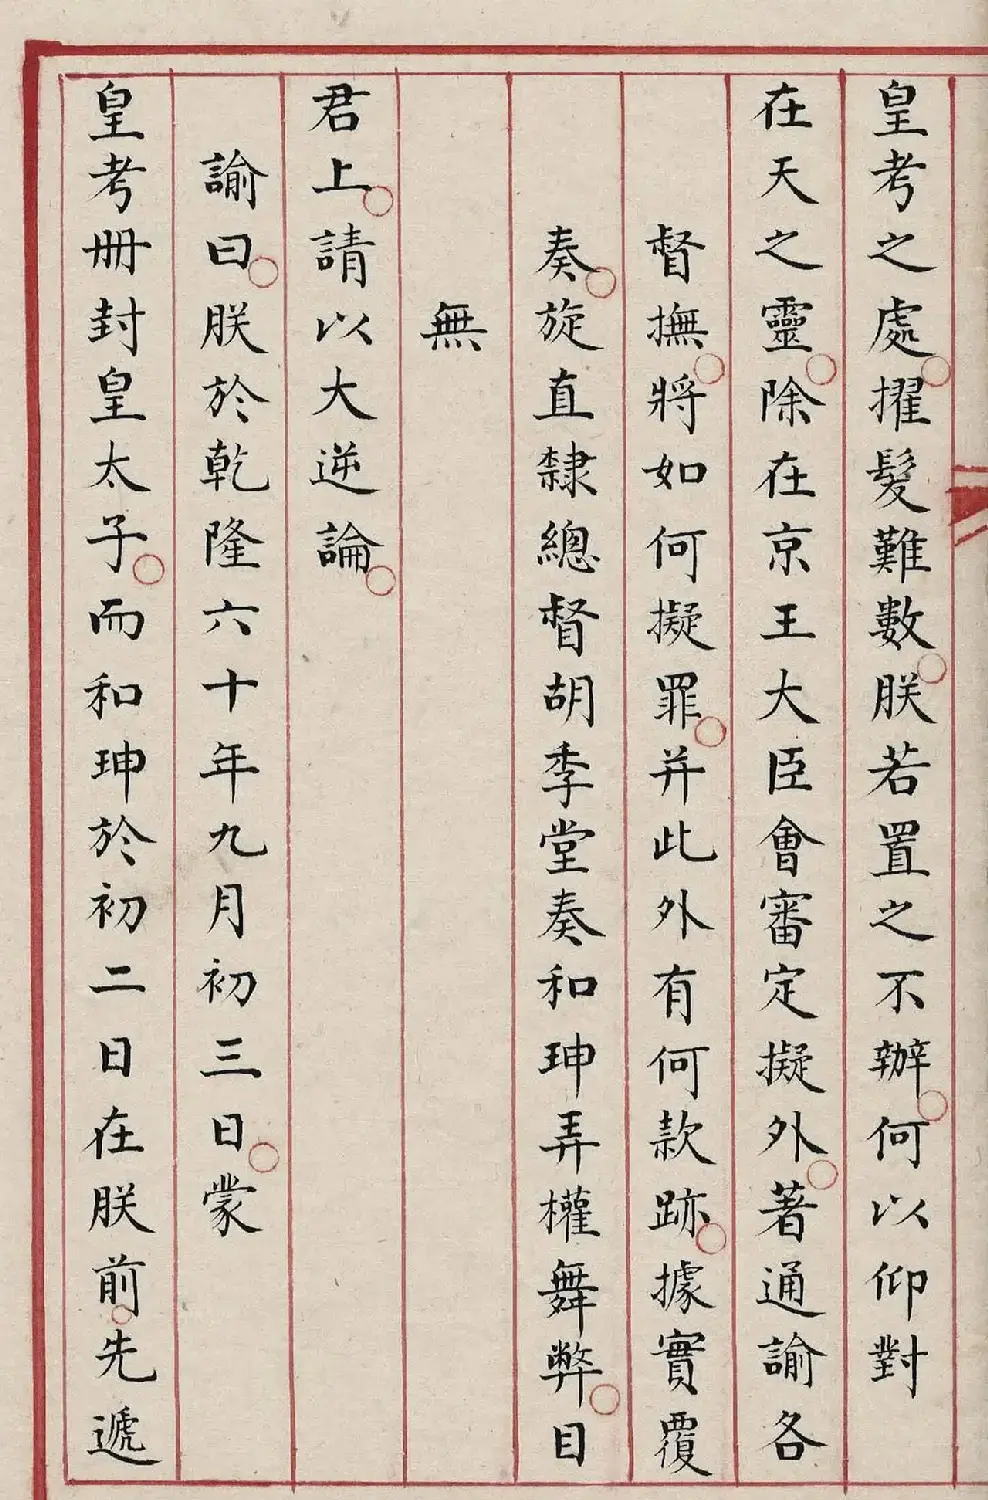 皇考之處。擢髮難數。朕若置之不辦。何以仰對
在天之靈。除在京王大臣會審定擬外。著通諭各
督撫。將如何擬罪。并此外有何款跡。據實覆
奏。旋直隸總督胡季堂奏和珅弄權舞弊。目
無
君上。請以大逆論。
諭曰。朕於乾隆六十年九月初三日。蒙
皇考冊封皇太子。而和珅於初二日在朕前。先遞